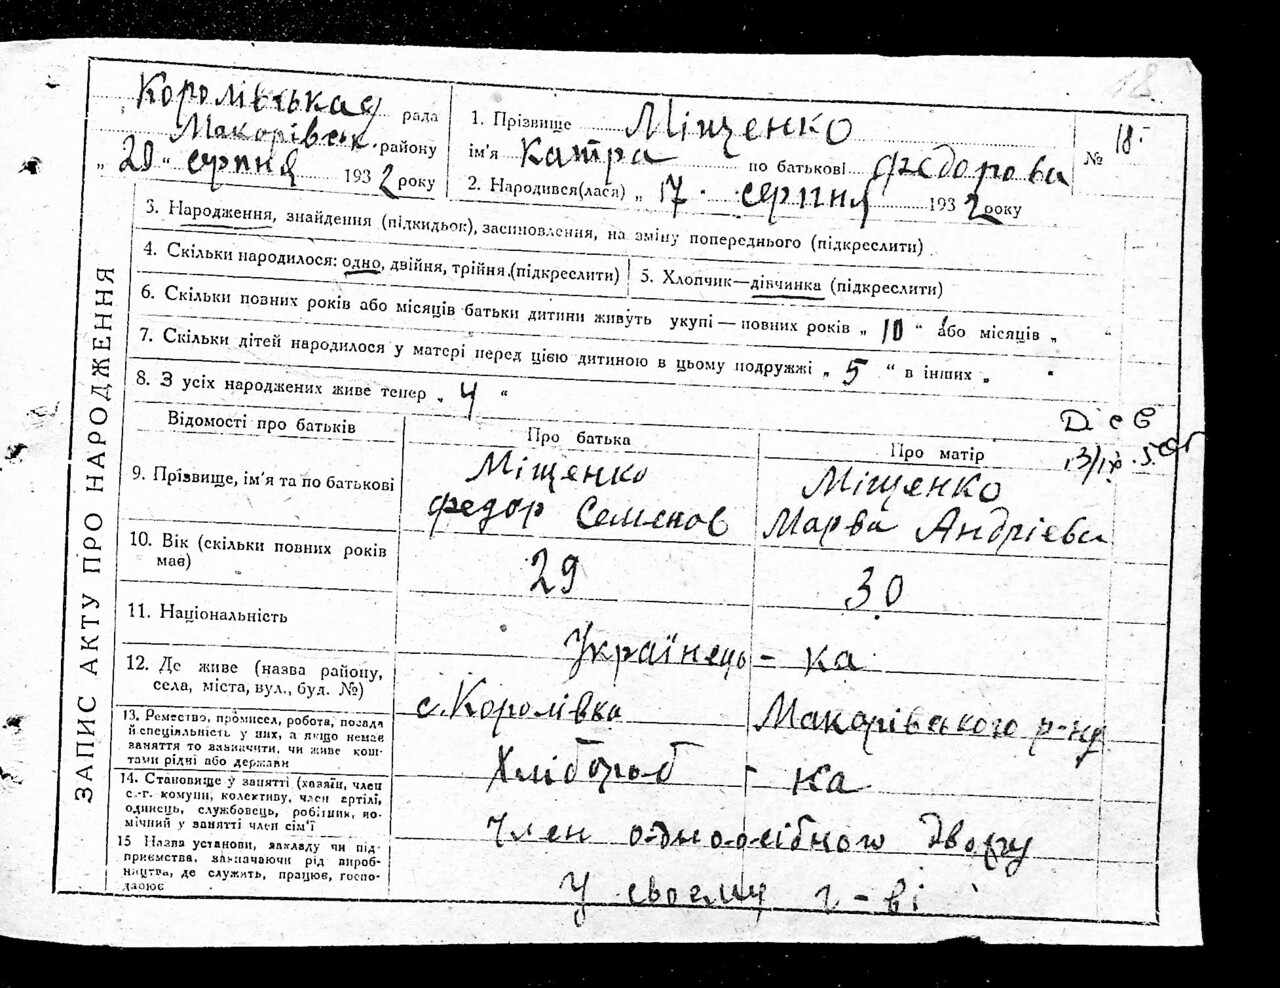 18
Королівська рада
Макарівськ. району
„ 20 " серпня 1932 року
1. Прізвище Міщенко
ім'я Катра по батькові Федорова
№ 18
2. Народився(лася) „ 17 серпня 1932 року
3. Народження, знайдення (підкидьок), засиновлення, на зміну попереднього (підкреслити)
4. Скільки народилося: одно, двійня, трійня.(підкреслити)
5. Хлопчик—дівчинка (підкреслити)
6. Скільки повних років або місяців батьки дитини живуть укупі — повних років „ 10 " або місяців „ "
7. Скільки дітей народилося у матері перед цією дитиною в цьому подружжі „ 5 " в інших „ "
8. З усіх народжених живе тепер „ 4 "
ЗАПИС АКТУ ПРО НАРОДЖЕННЯ
Відомості про батьків
Про батька
Про матір
9. Прізвище, ім'я та по батькові
Міщенко
Федор Семенов
Міщенко
Марва Андрієва
10. Вік (скільки повних років
має)
29
30
11. Національність
Українець - ка
12. Де живе (назва району,
села, міста, вул., буд. №)
с. Королівка Макарівського р-ну
13. Ремество, промисел, робота, посада
й спеціяльність у них, а якщо немає
заняття то зазначити, чи живе кош-
тами рідні або держави
Хлібороб - ка
14. Становище у занятті (хазяїн, член
с.-г. комуни, колективу, член артілі,
одинець, службовець, робітник, по-
мічний у занятті член сім'ї
член одноосібного двору
15 Назва установи, закладу чи під-
приємства, зазначаючи рід вироб-
ництва, де служить, працює, госпо-
дарює
У своєму г-ві